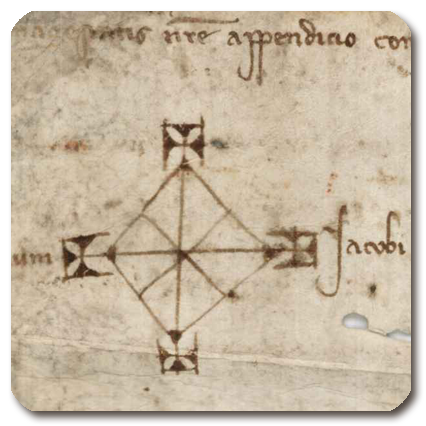 nr̅e appendicio con
um Jacobi